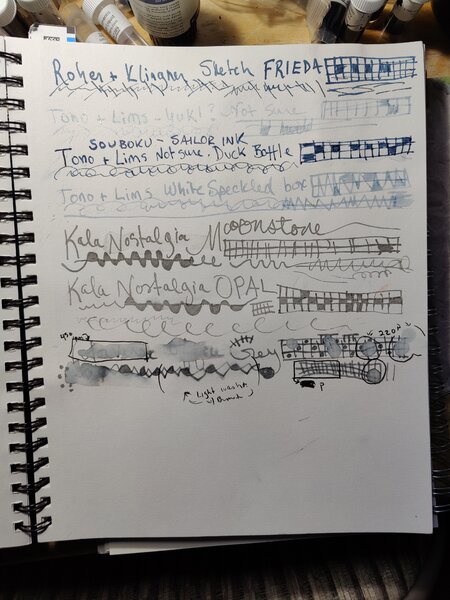 Rohrer + Klingner Sketch FRIEDA
Tono + Lims - Yuki? Not sure
SOUBOKU - SAILOR INK
Tono + Lims Not sure. Duck Bottle
Tono + Lims White Speckled box
Kala Nostalgia Moonstone
Kala Nostalgia OPAL
Grey
220
P
Light wash
w/